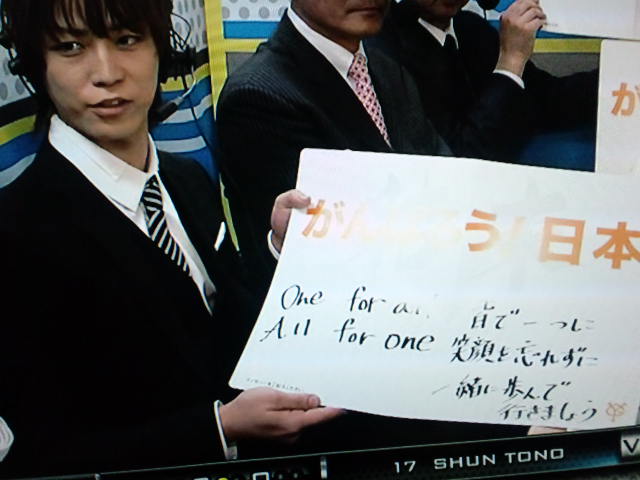 がんばろう!日本
One for all 皆で一つに
All for one 笑顔を忘れずに
一緒に歩んで
行きましょう
が
17 SHUN TONO